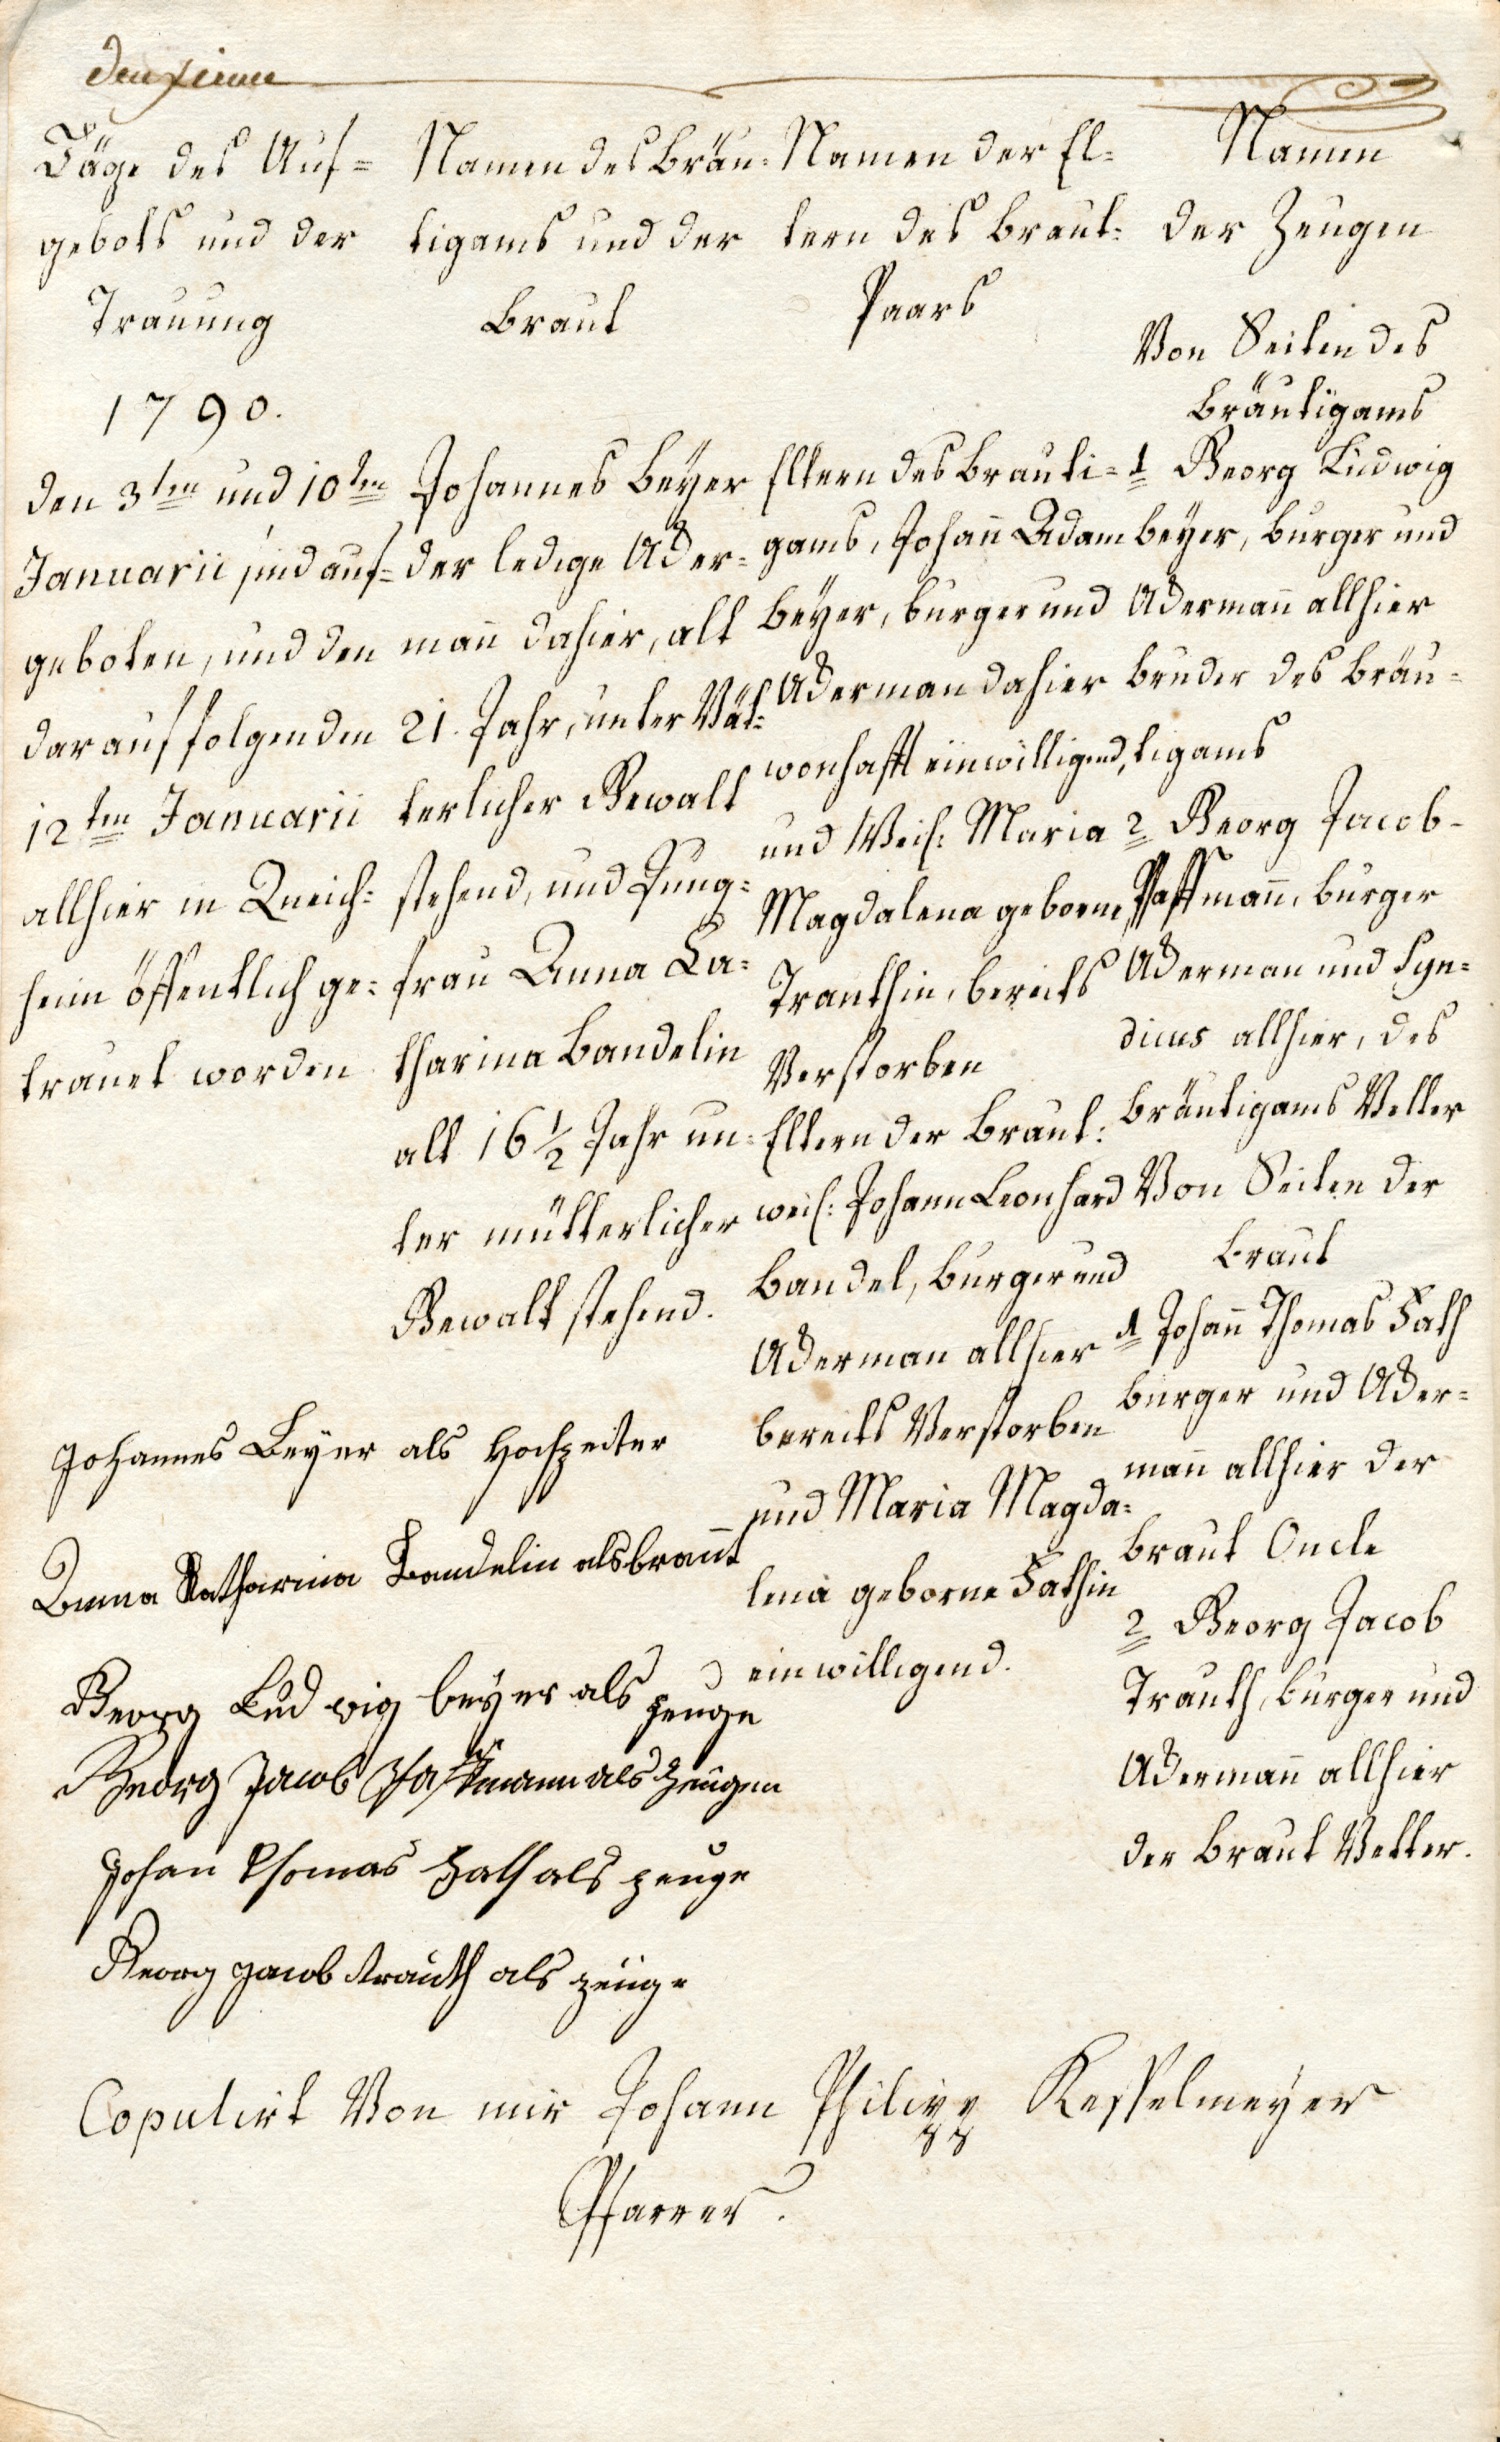 deuxieme
Täge des Auf=
gebots und der
Trauung
1790.
den 3ten und 10ten
Januarii sind auf=
geboten, und den
darauf folgenden
12ten Januarii
allhier in Queich=
heim öffentlich ge=
trauet worden
Namen des Bräu=
tigams und der
Braut
Johannes Beÿer
der ledige Acker=
mañ dahier, alt
21. Jahr, unter Vät=
terlicher Gewalt
stehend, und Jung=
frau Anna Ca=
tharina Bandelin
alt 16 1/2 Jahr un=
ter mütterlicher
Gewalt stehend.
Namen der El=
tern des Braut=
Paars
Eltern des Bräuti=
gams, Johañ Adam
Beÿer, burger und
Ackerman dahier
wonhafft einwilligend,
und Weil: Maria
Magdalena geborne
Trauthin, bereits
Verstorben
Eltern der Braut:
weil: Johann Leonhard
Bandel, Burger und
Ackerman allhier
bereits Verstorben
und Maria Magda=
lena geborne Fathin
einwilligend.
Namen
der Zeugen
Von Seiten des
Bräutigams
1 Georg Ludwig
beÿer, burger und
Ackermañ allhier
bruder des Bräu=
tigams
2 Georg Jacob
Pfaffmañ, burger
Ackerman und Syn=
dicus allhier, des
Bräutigams Vetter
Von Seiten der
Braut
1 Johañ Thomas Fath
burger und Acker=
mañ allhier der
Braut Oncle
2 Georg Jacob
Trauth, burger und
Ackermañ allhier
der Braut Vetter.
Johannes Beyer als Hochzeiter
Anna Katharina Bandelin als braut
Georg Ludwig beÿer als zeuge
Georg Jacob Pfaffmann als Zeugen
Johan Thomas Fath als zeuge
Georg Jacob trauth als zeuge
Copulirt Von mir Johann Philipp Kesselmeÿer
Pfarrer.